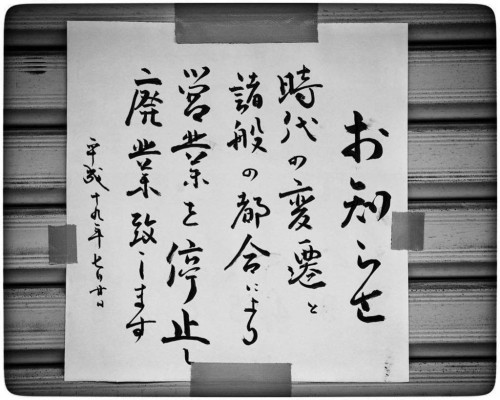 お知らせ
時代の変遷と
諸般の都合により
営業を停止し
廃業致します
平成十九年七月廿日